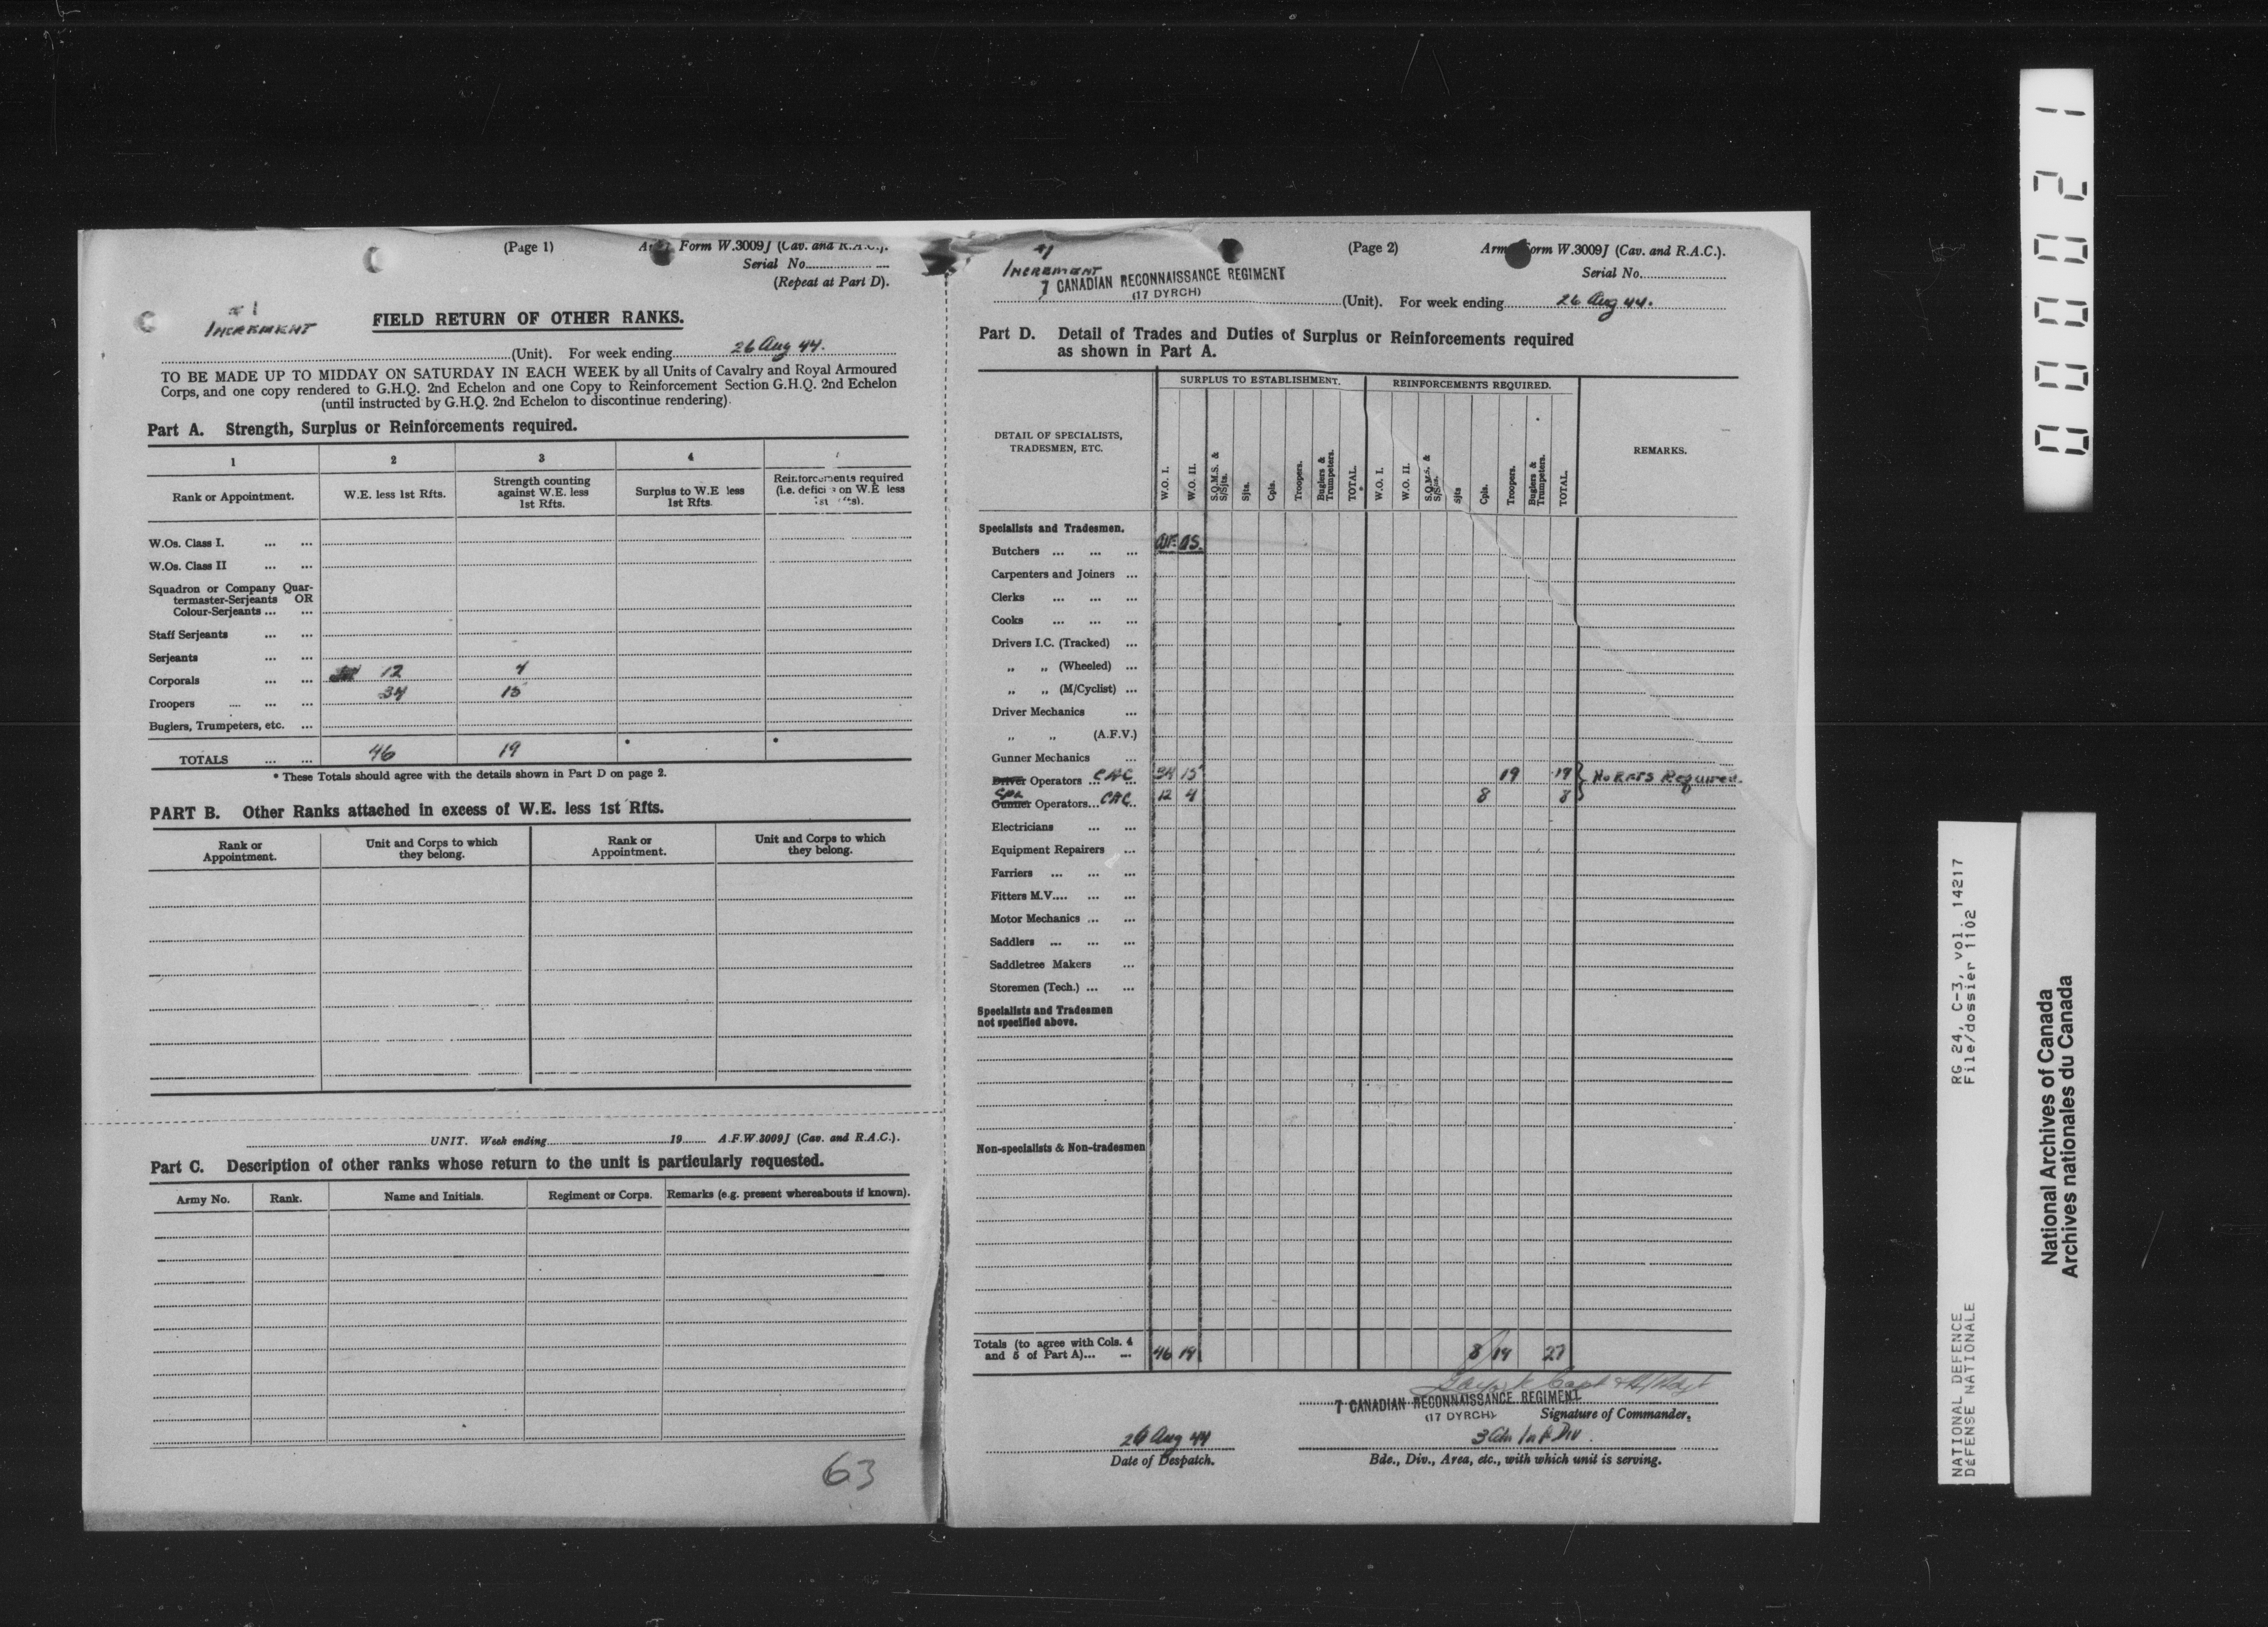 (Page 1)
Form W.3009J (Cav. and R.A.C.).
Serial No.
(Repeat at Part D).
#1
INCREMENT
FIELD RETURN OF OTHER RANKS.
(Unit). For week ending 26 Aug 44.
TO BE MADE UP TO MIDDAY ON SATURDAY IN EACH WEEK by all Units of Cavalry and Royal Armoured
Corps, and one copy rendered to G.H.Q. 2nd Echelon and one Copy to Reinforcement Section G.H.Q. 2nd Echelon
(until instructed by G.H.Q. 2nd Echelon to discontinue rendering).
Part A. Strength, Surplus or Reinforcements required.
1 2 3 4
Rank or Appointment. W.E. less 1st Rfts. Strength counting against W.E. less 1st Rfts. Surplus to W.E less 1st Rfts. Reinforcements required (i.e. defici on W.E less
W.Os. Class I. ... ...
W.Os. Class II ... ...
Squadron or Company Quar-
termaster-Serjeants OR
Colour-Serjeants ... ...
Staff Serjeants ... ...
Serjeants ... ...
Corporals ... ... 12 4
Troopers ... ... ... 34 15
Buglers, Trumpeters, etc. ...
TOTALS ... ... 46 19 * *
* These Totals should agree with the details shown in Part D on page 2.
PART B. Other Ranks attached in excess of W.E. less 1st Rfts.
Rank or Appointment. Unit and Corps to which they belong. Rank or Appointment. Unit and Corps to which they belong.
UNIT. Week ending 19 A.F.W.3009J (Cav. and R.A.C.).
Part C. Description of other ranks whose return to the unit is particularly requested.
Army No. Rank. Name and Initials. Regiment or Corps. Remarks (e.g. present whereabouts if known).
63
(Page 2)
Form W.3009J (Cav. and R.A.C.).
Serial No.
#1
INCREMENT
7 CANADIAN RECONNAISSANCE REGIMENT
(17 DYRCH)
(Unit). For week ending 26 Aug 44.
Part D. Detail of Trades and Duties of Surplus or Reinforcements required
as shown in Part A.
SURPLUS TO ESTABLISHMENT. REINFORCEMENTS REQUIRED.
DETAIL OF SPECIALISTS, TRADESMEN, ETC. W.O. I. W.O. II. S.Q.M.S. & S/Sjts. Sjts. Cpls. Troopers. Buglers & Trumpeters. TOTAL. * W.O. I. W.O. II. S.Q.M.S. & S/Sjts. Sjts Cpls. Troopers. Buglers & Trumpeters. TOTAL. REMARKS.
Specialists and Tradesmen.
Butchers ... ... ...
Carpenters and Joiners ...
Clerks ... ... ...
Cooks ... ... ...
Drivers I.C. (Tracked) ...
„ „ (Wheeled) ...
„ „ (M/Cyclist) ...
Driver Mechanics ...
„ „ (A.F.V.)
Gunner Mechanics ...
Driver Operators ... CAC 34 15 19 19 } No Rfts Required.
Gunner Operators... CAC 12 4 8 8
Electricians ... ...
Equipment Repairers ...
Farriers ... ... ...
Fitters M.V.... ... ...
Motor Mechanics ... ...
Saddlers ... ... ...
Saddletree Makers ...
Storemen (Tech.) ... ...
Specialists and Tradesmen
not specified above.
Non-specialists & Non-tradesmen
Totals (to agree with Cols. 4
and 5 of Part A)... ... 46 19 8 19 27
7 CANADIAN RECONNAISSANCE REGIMENT
(17 DYRCH)
Signature of Commander.
26 Aug 44
Date of Despatch.
3 Cdn Inf Div.
Bde., Div., Area, etc., with which unit is serving.
00021
RG 24, C-3, vol. 14217
File/dossier 1102
NATIONAL DEFENCE
DÉFENSE NATIONALE
National Archives of Canada
Archives nationales du Canada